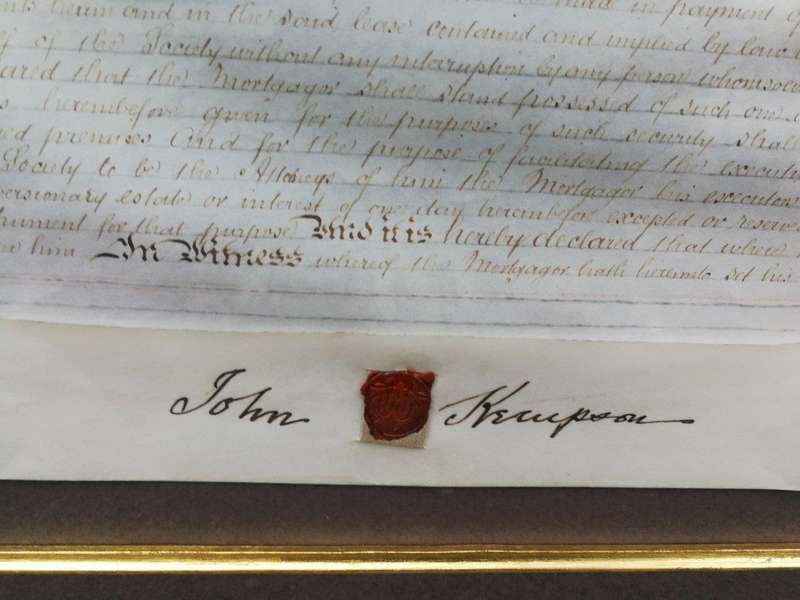 in payment of
herein and in the said lease contained and implied by law
of the Society without any interruption by any person whomsoever
that the Mortgagor shall stand possessed of such one
hereinbefore given for the purposes of such security shall
premises And for the purpose of facilitating the
Society to be the Attorneys of him the Mortgagor his executors
estate or interest of one day hereinbefore excepted or
for that purpose And it is hereby declared that where
him In Witness whereof the Mortgagor hath hereunto set his
John Kempson